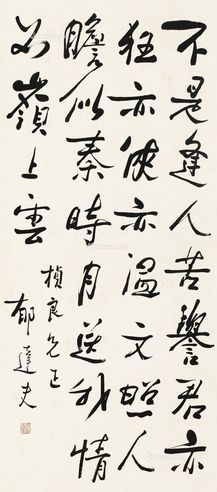 不是逢人苦譽君亦
狂亦俠亦溫文照人
膽似秦時月送我情
如嶺上雲
楨良兄正
郁達夫